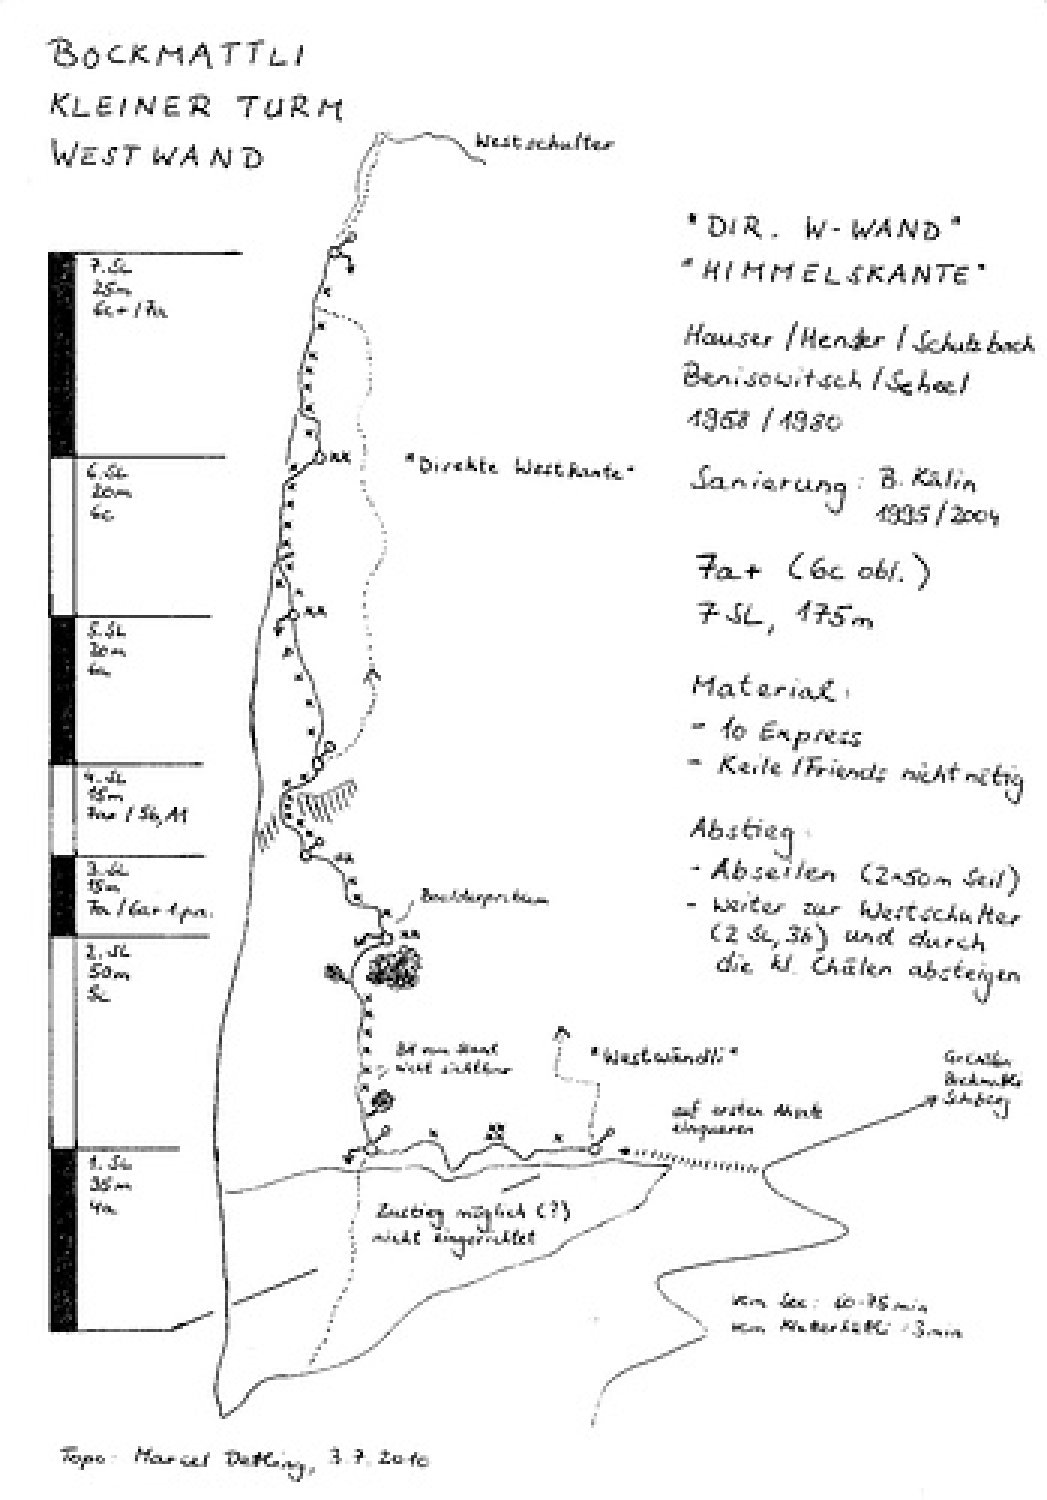 BOCKMATTLI
KLEINER TURM
WESTWAND
Westschulter
"DIR. W-WAND"
"HIMMELSKANTE"
Hauser / / Schutzbach
Benisowitsch / Scheel
1958 / 1980
Sanierung: B. Kälin
1995/2004
7a+ (6c obl.)
7 SL, 175m
Material:
- 10 Express
- Keile/Friends nicht nötig
Abstieg:
- Abseilen (2x50m Seil)
- Weiter zur Westschulter
(2 SL, 3b) und durch
die kl. Chälen absteigen
7. SL
25m
6c+ / 7a
6. SL
20m
6c
"Direkte Westkante"
5. SL
20m
6a
4. SL
15m
/ 5b, A1
3. SL
15m
7a / 6a+ 1 p.a.
Boulderproblem
2. SL
50m
5c
BH vom Stand
nicht sichtbar
"Westwändli"
auf ersten
einqueren
1. SL
35m
4a
Zustieg möglich (?)
nicht eingerichtet
vom See:
vom
Topo: Marcel Dettling, 3.7.2010